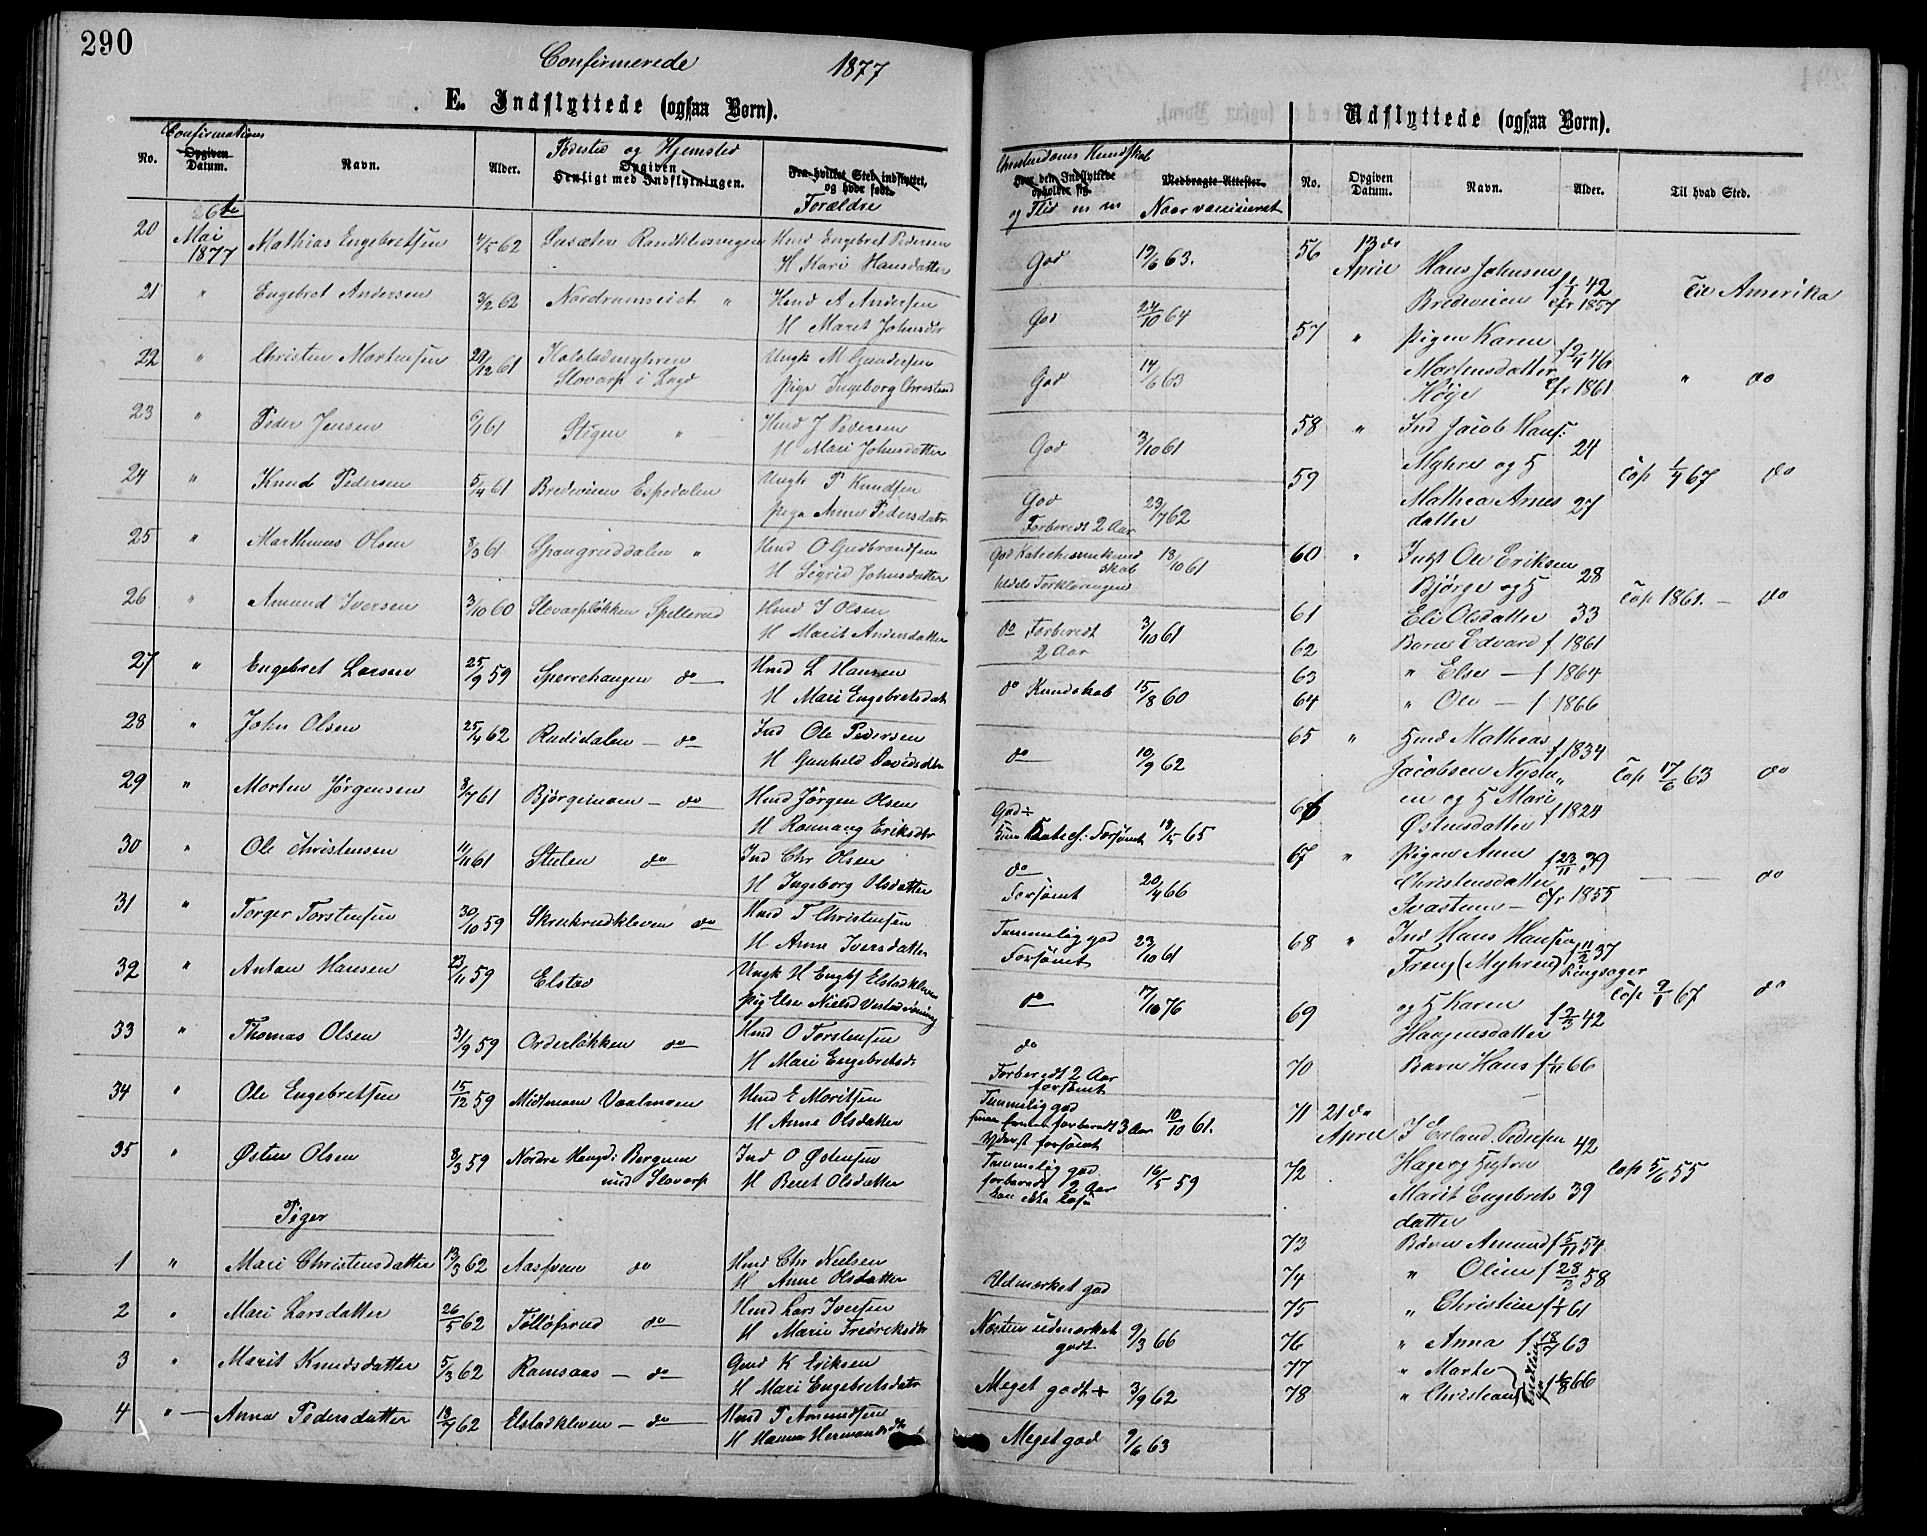 290
Confirmerede 1877
E. Indflyttede (ogsaa Børn).
Confirmations
No. Opgiven Datum. Navn. Alder. Fødested og Hjemsted Opgiven Henligt med Indflytningen. Fra hvilket Sted indflyttet, og hvor født. Forældre
20 6te Mai 1877 Mathias Engebretsen 4/5 62 Randklevsvegen Hmd Engebret Pedersen
H Kari Hansdatter
21 " Engebret Andersen 3/2 62 Nordrumseiet " Hmd A Andersen
H Marit Johnsdtr
22 " Christen Mortensen 29/12 61 Kolstadmyhren Ungk M Gundersen
Slovarp i Pige Ingeborg Christensd
23 " Peder Jensen 6/1 61 Stigen " Hmd J Pedersen
H Mari Johnsdatter
24 " Knud Pedersen 5/4 61 Bredeveien Espedalen Ungk P Knudsen
Pige Anne Pedersdatr
25 " Marthinus Olsen 8/3 61 Spangruddalen " Hmd O Gudbrandsen
H Sigrid Johnsdatter
26 " Amund Iversen 3/10 60 Slovarpløkken Hmd I Olsen
H Marit Andersdatter
27 " Engebret Larsen 25/9 59 Sperrehaugen do Hmd L Hansen
H Mari Engebretsdat
28 " John Olsen 25/4 62 Rudidalen – do Ind Ole Pedersen
H Gunhild Davidsdtr
29 " Morten Jørgensen 3/7 61 Bjørgemoen – do Hmd Jørgen Olsen
H Ronnaug Eriksdtr
30 " Ole Christensen 11/11 61 Stulen do Ind Chr Olsen
H Ingeborg Olsdatter
31 " Torger Torstensen 30/10 59 Skrukrudkleven do Hmd T Christensen
H Anne Iversdatter
32 " Anton Hansen 23/11 59 Elstad Ungk H Engbf Elstadkleven
Pig Else Nielsd
33 " Thomas Olsen 31/9 59 Orderløkken do Hmd O Torstensen
H Mari Engebretsd
34 " Ole Engebretsen 15/12 59 Midtmoen Vaalmoen Hmd E Moritsen
H Anne Olsdatter
35 " Østen Olsen 8/3 59 Nordre Haugd: Bergum Ind O Østensen
und Slovarp H Beret Olsdatter
Piger
1 " Mari Christensdatter 13/3 62 Aasprem do Hmd Chr Nielsen
H Anne Olsdatter
2 " Mari Larsdatter 26/5 62 Tølløfsrud do Hmd Lars Iversen
H Marie Fredriksdtr
3 " Marit Knudsdatter 5/3 62 Ramsaas – do Gmd K Eriksen
H Mari Engebretsdatr
4 " Anna Pedersdatter 13/7 62 Elstadkleven – do Hmd P Amundsen
H Hanna Hermandsdtr
Udflyttede (ogsaa Børn).
Christendoms Kundskab og Flid m m Hvor den Indflyttede opholder sig. Medbragte Attester. Naar vaccineret No. Opgiven Datum. Navn. Alder. Til hvad Sted.
God 19/6 63.
God 24/10 64
God 14/6 63
God 3/10 61
God
Forberedt 2 Aar 23/7 62
God Katechismekund
skab 13/10 61
Forklaringen
do Forberedt 3/10 61
2 Aar
do Kundskab 15/8 60
do 10/9 62
God÷
Forsømt 18/5 65
do
Forsømt 20/4 66
Temmelig god
Forsømt 23/10 61
do 17/10 76
do
Forberedt 2 Aar
forsømt
Temmelig god
forberedt 3 Aar 10/10 61.
Yderst forsømt
Temmelig god
forberedt 2 Aar 16/5 59
kan ikke læse
Udmærket god
Næsten udmærket
godt 9/3 66
Meget godt÷ 3/9 62
Meget god 9/6 63
56 13do April Hans Johnsen f 1/1 42
Bredeveien cfr 1857 Til Amerika
57 " Pigen Karen
Mortensdatter f 2/4 46
Høge cfr 1861 " do
58 " Ind Jacob Hans:
Myhre og H 24
59 Mathea Arnes Cop 1/4 67 do
datter 27
60 " Indst Ole Eriksen
Bjørge og H 28
61 Eli Olsdatter 33 Cop 1861. – do
62 Børn Edvard f 1861
63 " Else – f 1864
64 " Ole – f 1866
65 " Hmd Mathias f 1834
Jacobsen Nystu " Cop 17/6 63 do
66 en og H Mari
Østensdatter f 1824
67 " Pigen Anne
Christensdatter f 23/11 39 — do
Svastuen – Cfr 1855
68 " Ind Hans Hansen f 11/2 37
Treng (Myhren) Ringsager
69 og H Karen Cop 9/1 67 do
Haagensdatter f 2/3 42
70 Barn Hans f 1/11 66
71 21do April I Erland Pedersen 42
Hage og Hustru
72 Marit Engebrets 39 Cop 5/6 55
datter
73 Børn Amund f 5/11 54
74 " Oline f 23/3 58
75 " Christine f 1/7 61
76 " Anna f 18/7 63
77 " Marte
78 " Christian Tvillinger f 1/8 66